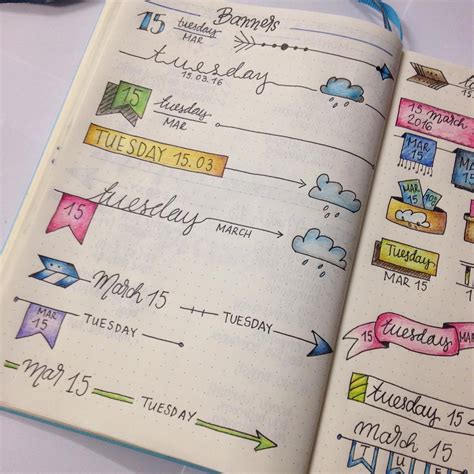 Banners
15 tuesday
MAR
tuesday
15.03.16
15 tuesday
MAR
TUESDAY 15.03
15 tuesday
MARCH
March 15 TUESDAY
MAR
15 TUESDAY
mar 15 TUESDAY
15 March
2016
MAR
15
MAR
15
Tuesday
MAR 15
15 tuesday
tuesday
MAR
15